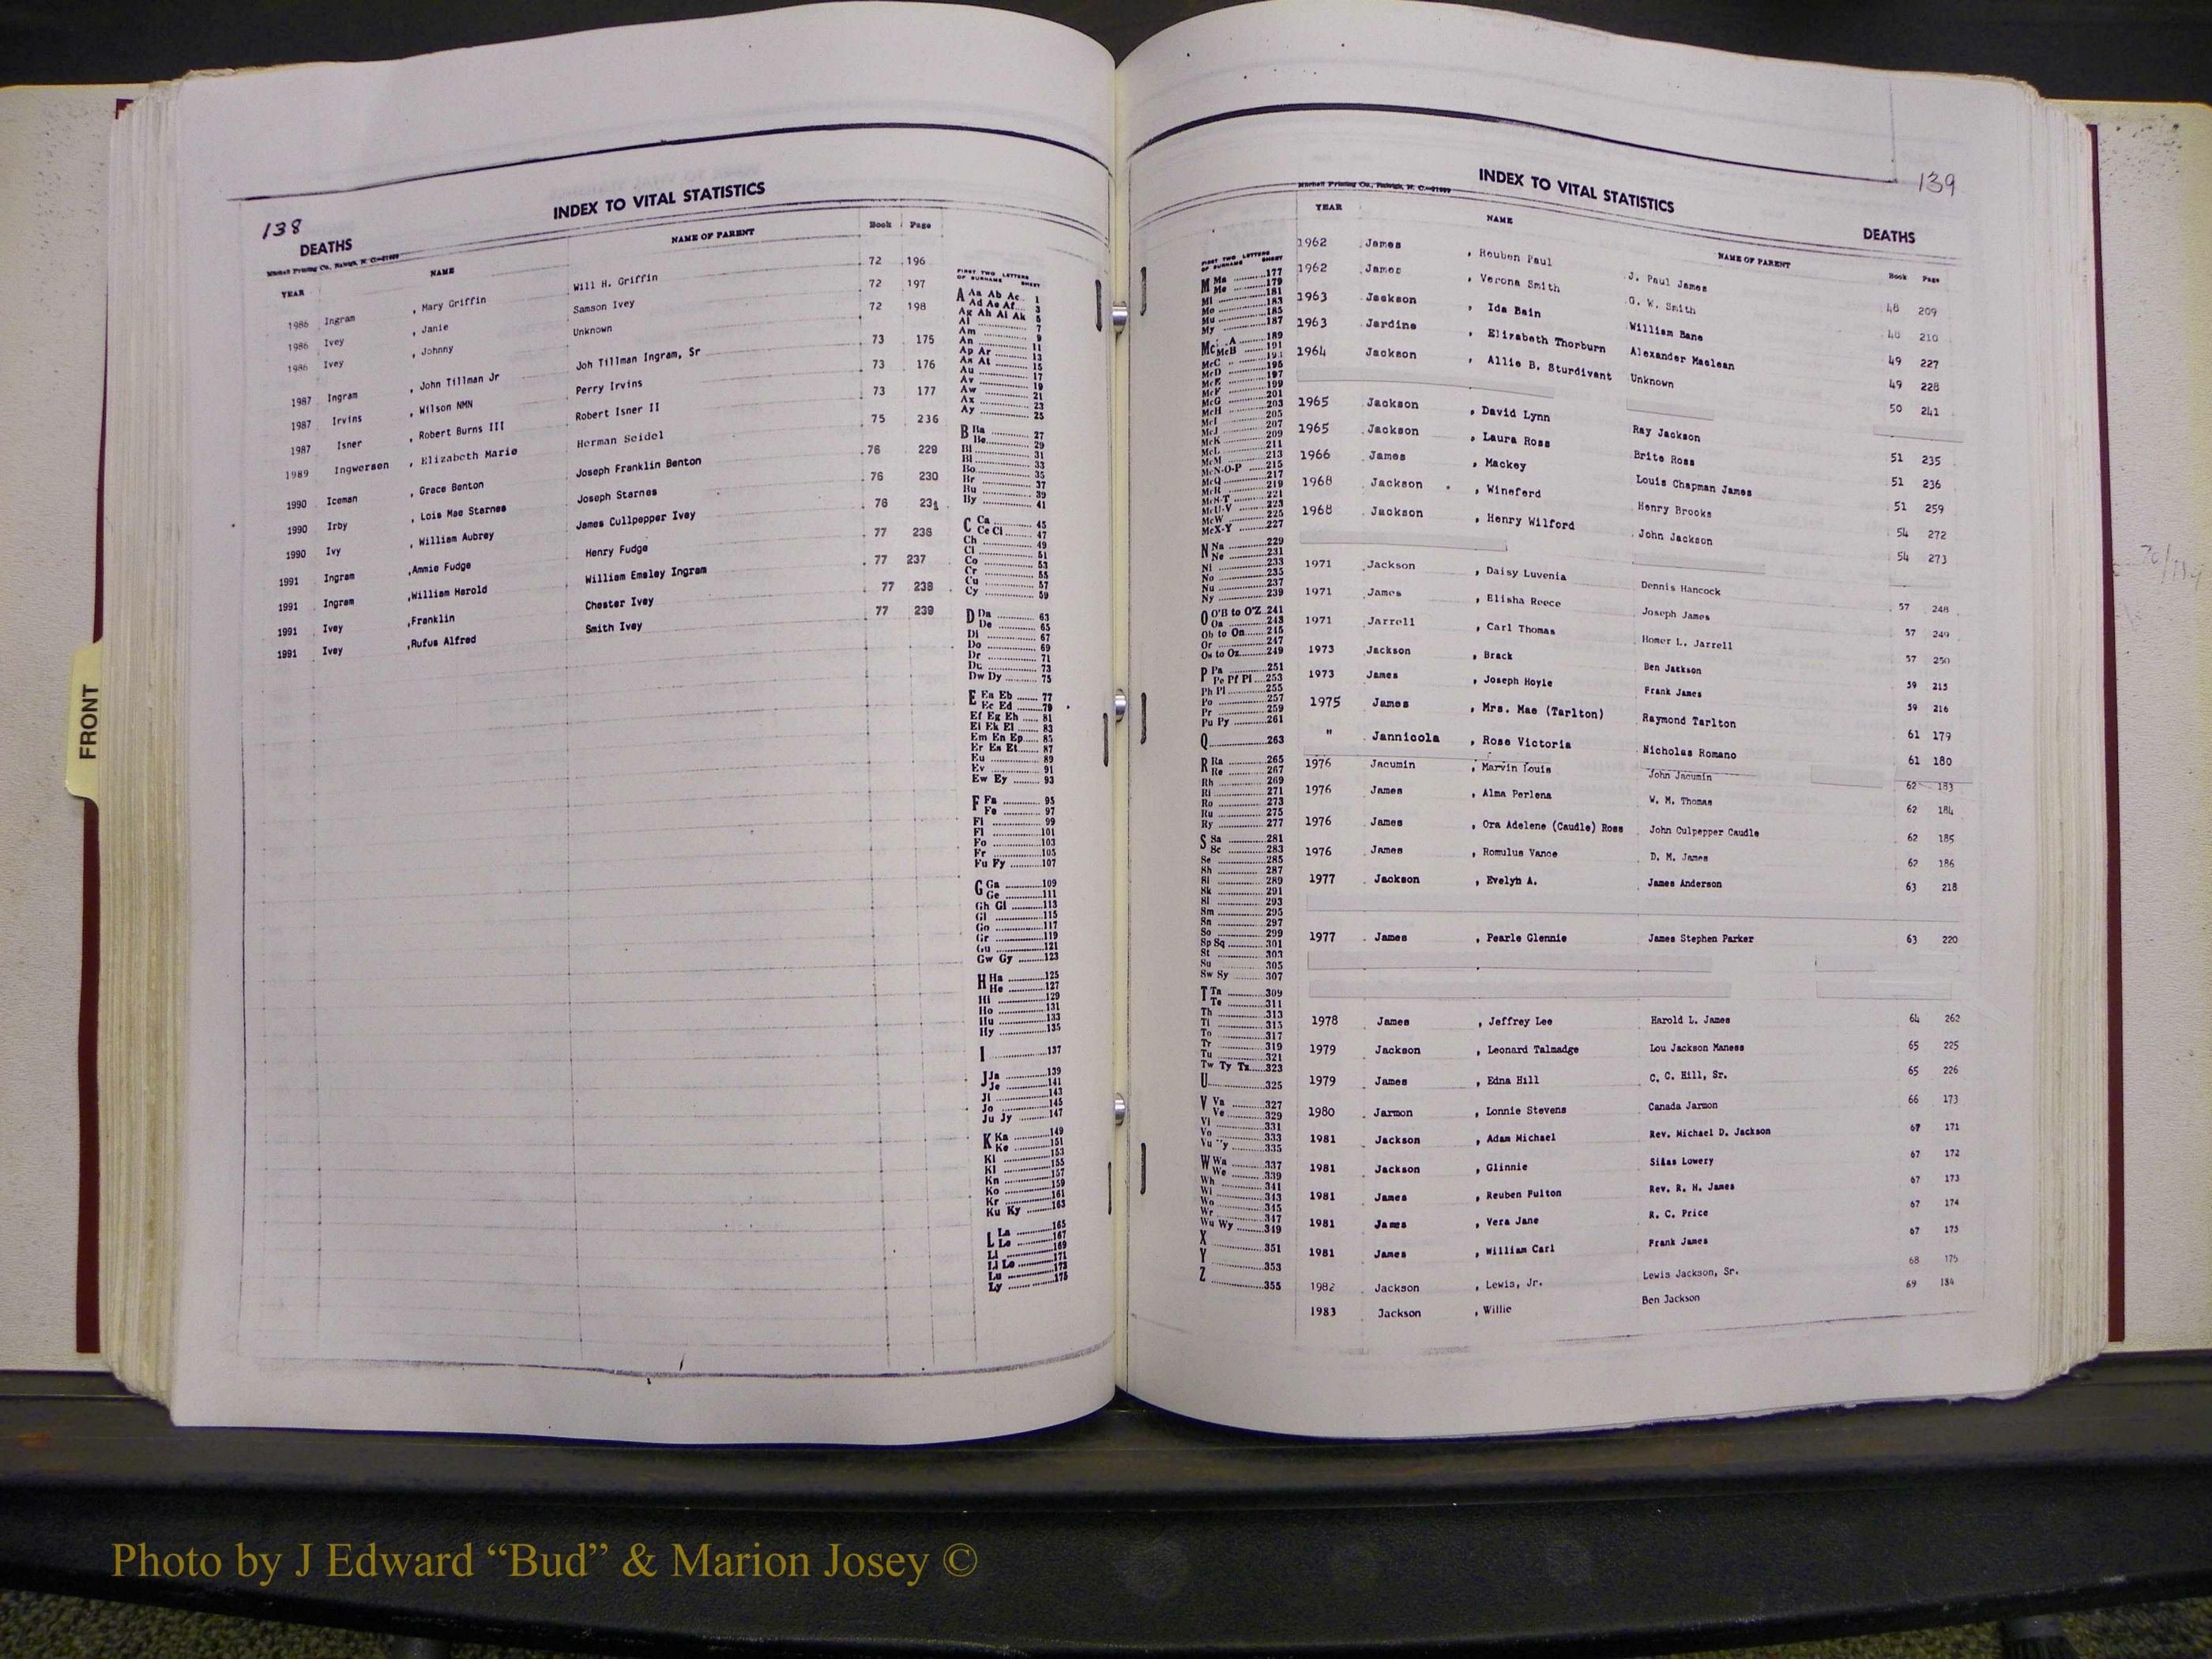 138
INDEX TO VITAL STATISTICS
DEATHS
Mitchell Printing Co., Raleigh, N. C.
YEAR NAME NAME OF PARENT Book Page
1986 Ingram , Mary Griffin Will H. Griffin 72 196
1986 Ivey , Janie Samson Ivey 72 197
1986 Ivey , Johnny Unknown 72 198
1987 Ingram , John Tillman Jr Joh Tillman Ingram, Sr 73 175
1987 Irvins , Wilson NMN Perry Irvins 73 176
1987 Isner , Robert Burns III Robert Isner II 73 177
1989 Ingwersen , Elizabeth Marie Herman Seidel 75 236
1990 Iceman , Grace Benton Joseph Franklin Benton 76 229
1990 Irby , Lois Mae Starnes Joseph Starnes 76 230
1990 Ivy , William Aubrey James Cullpepper Ivey 76 231
1991 Ingram ,Ammie Fudge Henry Fudge 77 236
1991 Ingram ,William Harold William Emsley Ingram 77 237
1991 Ivey ,Franklin Chester Ivey 77 238
1991 Ivey ,Rufus Alfred Smith Ivey 77 239
FIRST TWO LETTERS
OF SURNAME SHEET
A Aa Ab Ac 1
Ad Ae Af 3
Ag Ah Ai Ak 5
Al 7
Am 9
An 11
Ap Ar 13
As At 15
Au 17
Av 19
Aw 21
Ax 23
Ay 25
B Ba 27
Be 29
Bi 31
Bl 33
Bo 35
Br 37
Bu 39
By 41
C Ca 45
Ce Ci 47
Ch 49
Cl 51
Co 53
Cr 55
Cu 57
Cy 59
D Da 63
De 65
Di 67
Do 69
Dr 71
Du 73
Dw Dy 75
E Ea Eb 77
Ec Ed 79
Ef Eg Eh 81
Ei Ek El 83
Em En Ep 85
Er Es Et 87
Eu 89
Ev 91
Ew Ey 93
F Fa 95
Fe 97
Fi 99
Fl 101
Fo 103
Fr 105
Fu Fy 107
G Ga 109
Ge 111
Gh Gi 113
Gl 115
Go 117
Gr 119
Gu 121
Gw Gy 123
H Ha 125
He 127
Hi 129
Ho 131
Hu 133
Hy 135
I 137
J Ja 139
Je 141
Ji 143
Jo 145
Ju Jy 147
K Ka 149
Ke 151
Ki 153
Kl 155
Kn 157
Ko 159
Kr 161
Ku Ky 163
L La 165
Le 167
Li 169
Ll Lo 171
Lu 173
Ly 175
FRONT
139
INDEX TO VITAL STATISTICS
Mitchell Printing Co., Raleigh, N. C.
DEATHS
YEAR NAME NAME OF PARENT Book Page
FIRST TWO LETTERS
OF SURNAME SHEET
M Ma 177
Me 179
Mi 181
Mo 183
Mu 185
My 187
Mc A 189
McB 191
McC 193
McD 195
McE 197
McF 199
McG 201
McH 203
McI 205
McJ 207
McK 209
McL 211
McM 213
McN-O-P 215
McQ 217
McR 219
McS-T 221
McU-V 223
McW 225
McX-Y 227
N Na 229
Ne 231
Ni 233
No 235
Nu 237
Ny 239
O O'B to O'Z 241
Oa 243
Ob to On 245
Or 247
Os to Oz 249
P Pa 251
Pe Pf Pi 253
Ph Pl 255
Po 257
Pr 259
Pu Py 261
Q 263
R Ra 265
Re 267
Rh 269
Ri 271
Ro 273
Ru 275
Ry 277
S Sa 281
Sc 283
Se 285
Sh 287
Si 289
Sk 291
Sl 293
Sm 295
Sn 297
So 299
Sp Sq 301
St 303
Su 305
Sw Sy 307
T Ta 309
Te 311
Th 313
Ti 315
To 317
Tr 319
Tu 321
Tw Ty Tz 323
U 325
V Va 327
Ve 329
Vi 331
Vo 333
Vu Vy 335
W Wa 337
We 339
Wh 341
Wi 343
Wo 345
Wr 347
Wu Wy 349
X 351
Y 353
Z 355
1962 James , Reuben Paul J. Paul James 48 209
1962 James , Verona Smith G. W. Smith 48 210
1963 Jackson , Ida Bain William Bane 49 227
1963 Jardine , Elizabeth Thorburn Alexander Maclean 49 228
1964 Jackson , Allie B. Sturdivant Unknown 50 241
1965 Jackson , David Lynn Ray Jackson 51 235
1965 Jackson , Laura Ross Brite Ross 51 236
1966 James , Mackey Louis Chapman James 51 259
1968 Jackson , Wineford Henry Brooks 54 272
1968 Jackson , Henry Wilford John Jackson 54 273
1971 Jackson , Daisy Luvenia Dennis Hancock 57 248
1971 James , Elisha Reece Joseph James 57 249
1971 Jarrell , Carl Thomas Homer L. Jarrell 57 250
1973 Jackson , Brack Ben Jackson 59 215
1973 James , Joseph Hoyle Frank James 59 216
1975 James , Mrs. Mae (Tarlton) Raymond Tarlton 61 179
" Jannicola , Rose Victoria Nicholas Romano 61 180
1976 Jacumin , Marvin Louis John Jacumin 62 183
1976 James , Alma Perlena W. M. Thomas 62 184
1976 James , Ora Adelene (Caudle) Ross John Culpepper Caudle 62 185
1976 James , Romulus Vance D. M. James 62 186
1977 Jackson , Evelyn A. James Anderson 63 218
1977 James , Pearle Glennie James Stephen Parker 63 220
1978 James , Jeffrey Lee Harold L. James 64 262
1979 Jackson , Leonard Talmadge Lou Jackson Maness 65 225
1979 James , Edna Hill C. C. Hill, Sr. 65 226
1980 Jarmon , Lonnie Stevens Canada Jarmon 66 173
1981 Jackson , Adam Michael Rev. Michael D. Jackson 67 171
1981 Jackson , Glinnie Silas Lowery 67 172
1981 James , Reuben Fulton Rev. R. H. James 67 173
1981 James , Vera Jane R. C. Price 67 174
1981 James , William Carl Frank James 67 175
1982 Jackson , Lewis, Jr. Lewis Jackson, Sr. 68 175
1983 Jackson , Willie Ben Jackson 69 184
Photo by J Edward “Bud” & Marion Josey ©